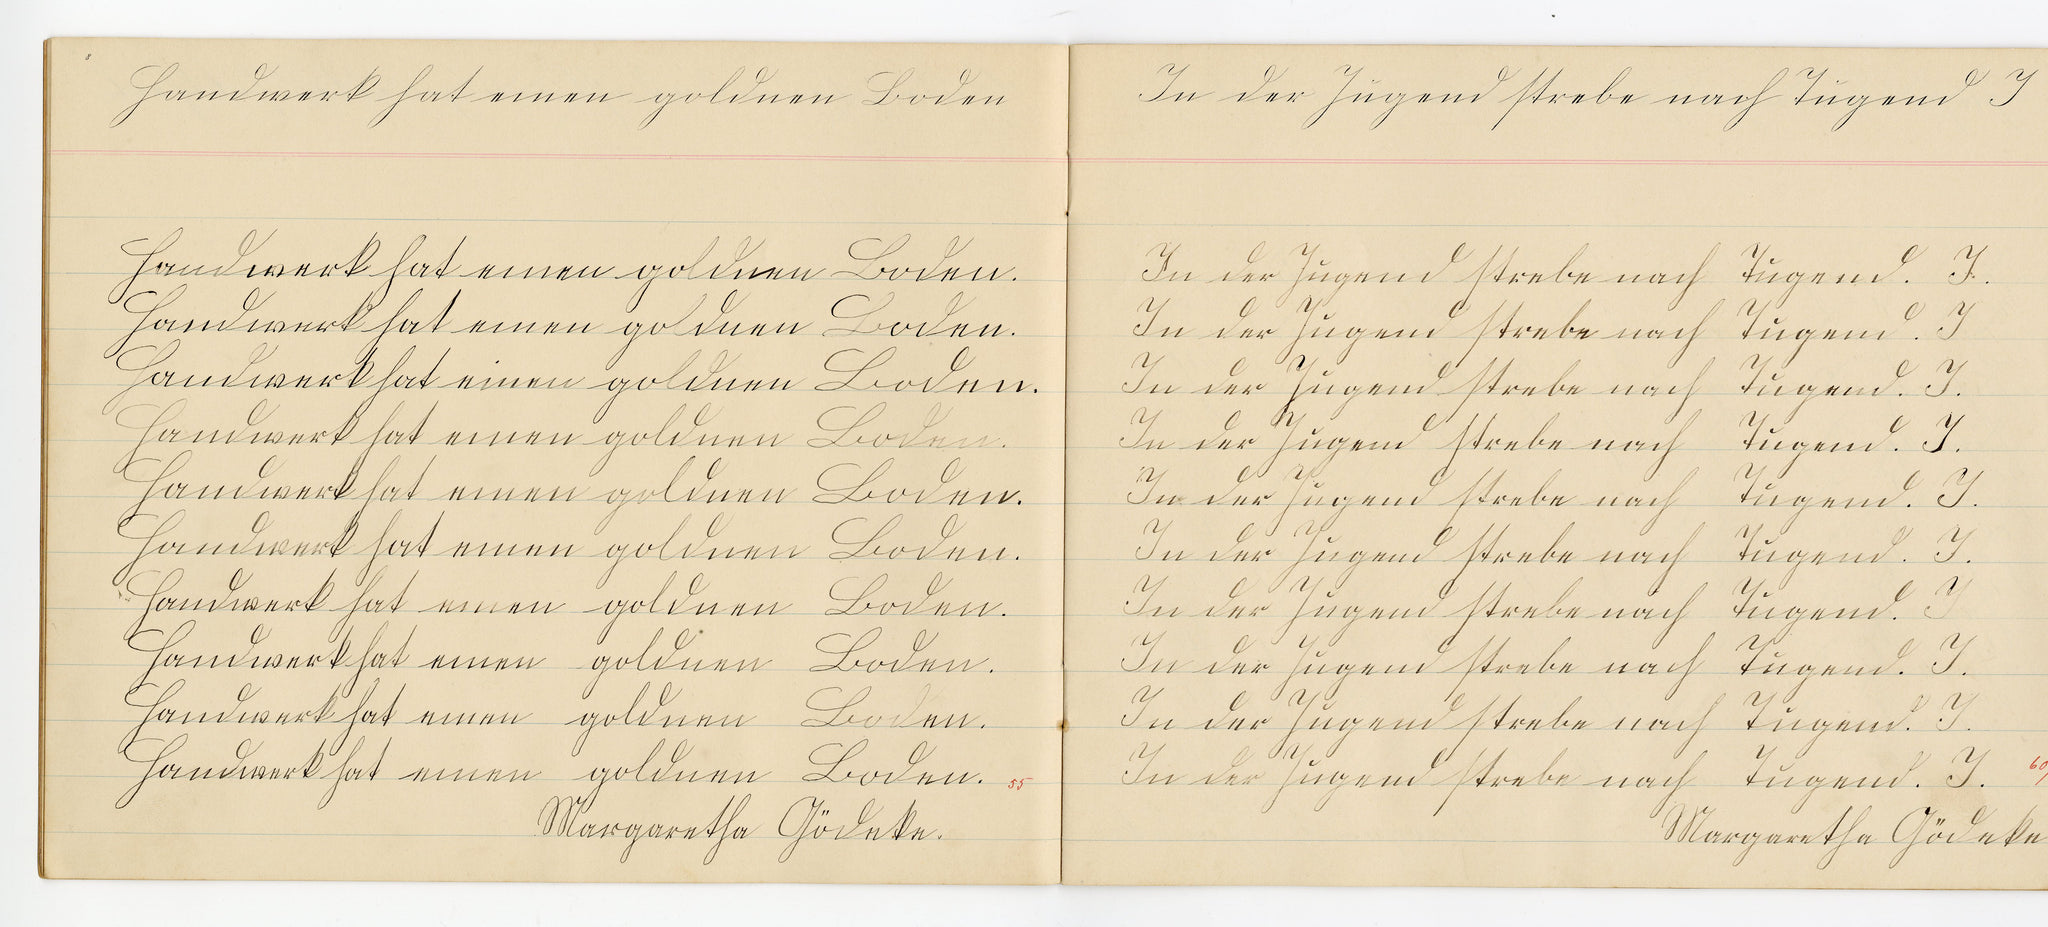 Handwerk hat einen goldnen Boden
Handwerk hat einen goldnen Boden.
Handwerk hat einen goldnen Boden.
Handwerk hat einen goldnen Boden.
Handwerk hat einen goldnen Boden.
Handwerk hat einen goldnen Boden.
Handwerk hat einen goldnen Boden.
Handwerk hat einen goldnen Boden.
Handwerk hat einen goldnen Boden.
Handwerk hat einen goldnen Boden.
Handwerk hat einen goldnen Boden. 55
Margaretha Gödeke.
In der Jugend strebe nach Tugend J
In der Jugend strebe nach Tugend. J.
In der Jugend strebe nach Tugend. J
In der Jugend strebe nach Tugend. J.
In der Jugend strebe nach Tugend. J.
In der Jugend strebe nach Tugend. J.
In der Jugend strebe nach Tugend. J.
In der Jugend strebe nach Tugend. J
In der Jugend strebe nach Tugend. J.
In der Jugend strebe nach Tugend. J.
In der Jugend strebe nach Tugend. J. 60
Margaretha Gödeke